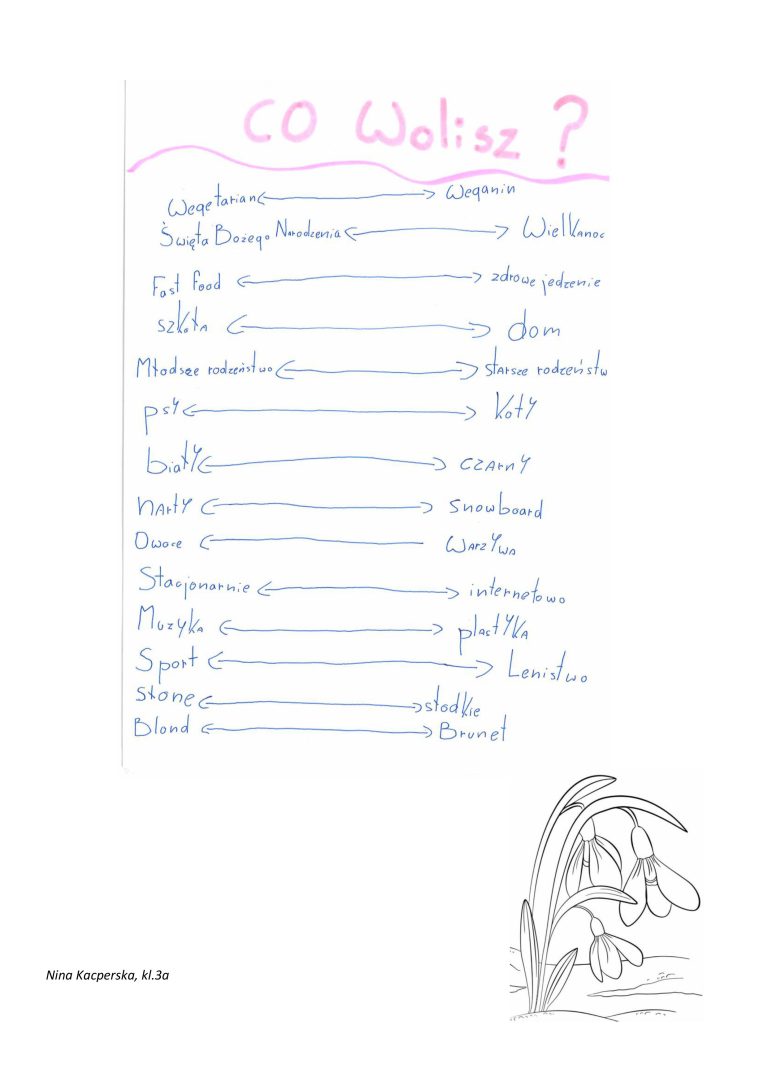 CO Wolisz ?
Wegetarian <-> Weganin
Święta Bożego Narodzenia <-> Wielkanoc
Fast food <-> zdrowe jedzenie
szkoła <-> dom
Młodsze rodzeństwo <-> starsze rodzeństw
psy <-> koty
biały <-> czarny
narty <-> snowboard
Owoce <- Warzywa
Stacjonarnie <-> internetowo
Muzyka <-> plastyka
Sport <-> Lenistwo
słone <-> słodkie
Blond <-> Brunet
Nina Kacperska, kl.3a